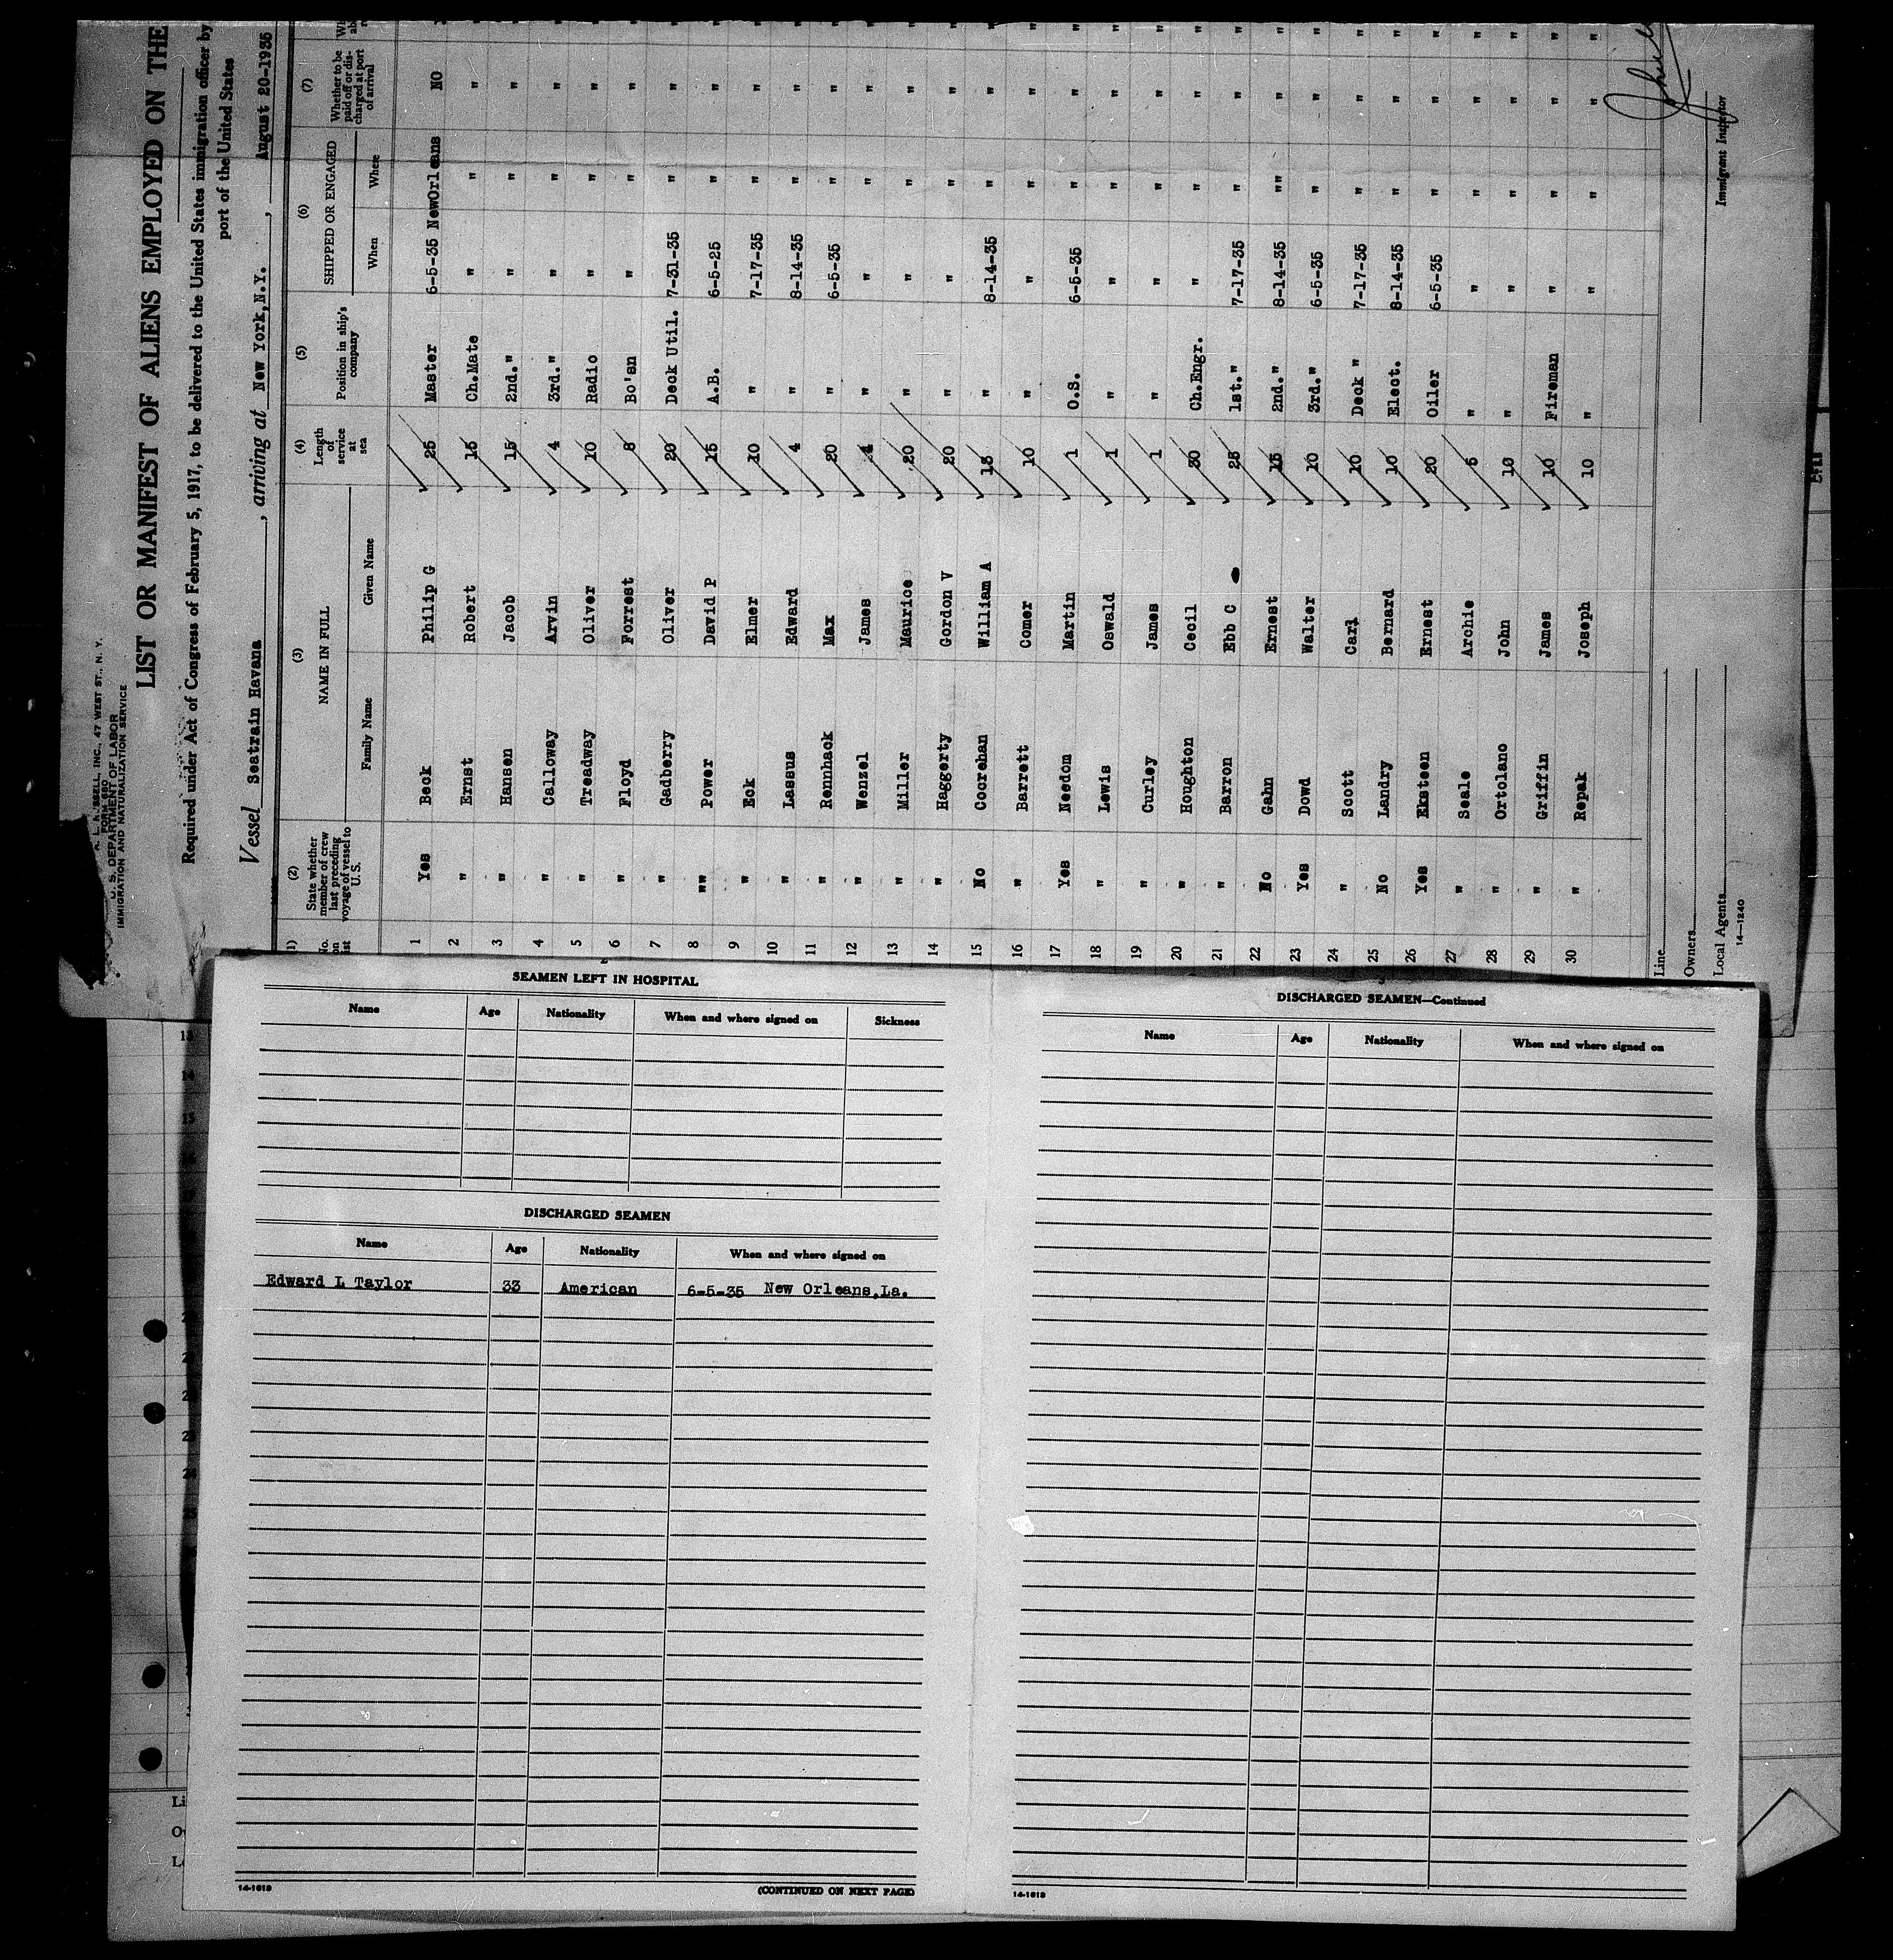 A. L. RUSSELL, INC., 47 WEST ST., N. Y.
FORM 680
U. S. DEPARTMENT OF LABOR
IMMIGRATION AND NATURALIZATION SERVICE
LIST OR MANIFEST OF ALIENS EMPLOYED ON THE
Required under Act of Congress of February 5, 1917, to be delivered to the United States immigration officer by
port of the United States
Vessel Seatrain Havana, arriving at New York,N.Y., August 20-1935
(1) (2) (3) (4) (5) (6) (7)
No. on list State whether member of crew last preceding voyage of vessel to U. S. NAME IN FULL Length of service at sea Position in ship's company SHIPPED OR ENGAGED Whether to be paid off or discharged at port of arrival
Family Name Given Name When Where
1 Yes Beck Philip G 25 Master 6-5-35 NewOrleans NO
2 " Ernst Robert 15 Ch.Mate " " " "
3 " Hansen Jacob 15 2nd." " " " "
4 " Calloway Arvin 4 3rd." " " " "
5 " Treadway Oliver 10 Radio " " " "
6 " Floyd Forrest 8 Bo'sn " " " "
7 " Gadberry Oliver 20 Deck Util. 7-31-35 " " "
8 "" Power David P 15 A.B. 6-5-25 " " "
9 " Eck Elmer 10 " 7-17-35 " " "
10 " Lassus Edward 4 " 8-14-35 " " "
11 " Rennhack Max 20 " 6-5-35 " " "
12 " Wenzel James 4 " " " " "
13 " Miller Maurice 20 " " " " "
14 " Haggerty Gordon V 20 " " " " "
15 No Cocrehan William A 15 " 8-14-35 " " "
16 " Barrett Comer 10 " " " " "
17 Yes Needom Martin 1 O.S. 6-5-35 " " "
18 " Lewis Oswald 1 " " " " "
19 " Curley James 1 " " " " "
20 " Houghton Cecil 30 Ch.Engr. " " " "
21 " Barron Ebb C 25 1st." 7-17-35 " " "
22 No Gahn Ernest 15 2nd." 8-14-35 "" " "
23 Yes Dowd Walter 10 3rd." 6-5-35 " " "
24 " Scott Carl 10 Deck " 7-17-35 " " "
25 No Landry Bernard 10 Elect. 8-14-35 " " "
26 Yes Eksteen Ernest 20 Oiler 6-5-35 " " "
27 " Seale Archie 5 " " " " "
28 " Ortolano John 10 " " " " "
29 " Griffin James 10 Fireman " " " "
30 " Repak Joseph 10 " " " " "
Line
Owners
Local Agents
14—1240
Immigrant Inspector
SEAMEN LEFT IN HOSPITAL
Name Age Nationality When and where signed on Sickness
DISCHARGED SEAMEN
Name Age Nationality When and where signed on
Edward L Taylor 33 American 6-5-35 New Orleans,La.
14-1613
(CONTINUED ON NEXT PAGE)
DISCHARGED SEAMEN—Continued
Name Age Nationality When and where signed on
14-1613
13
14
15